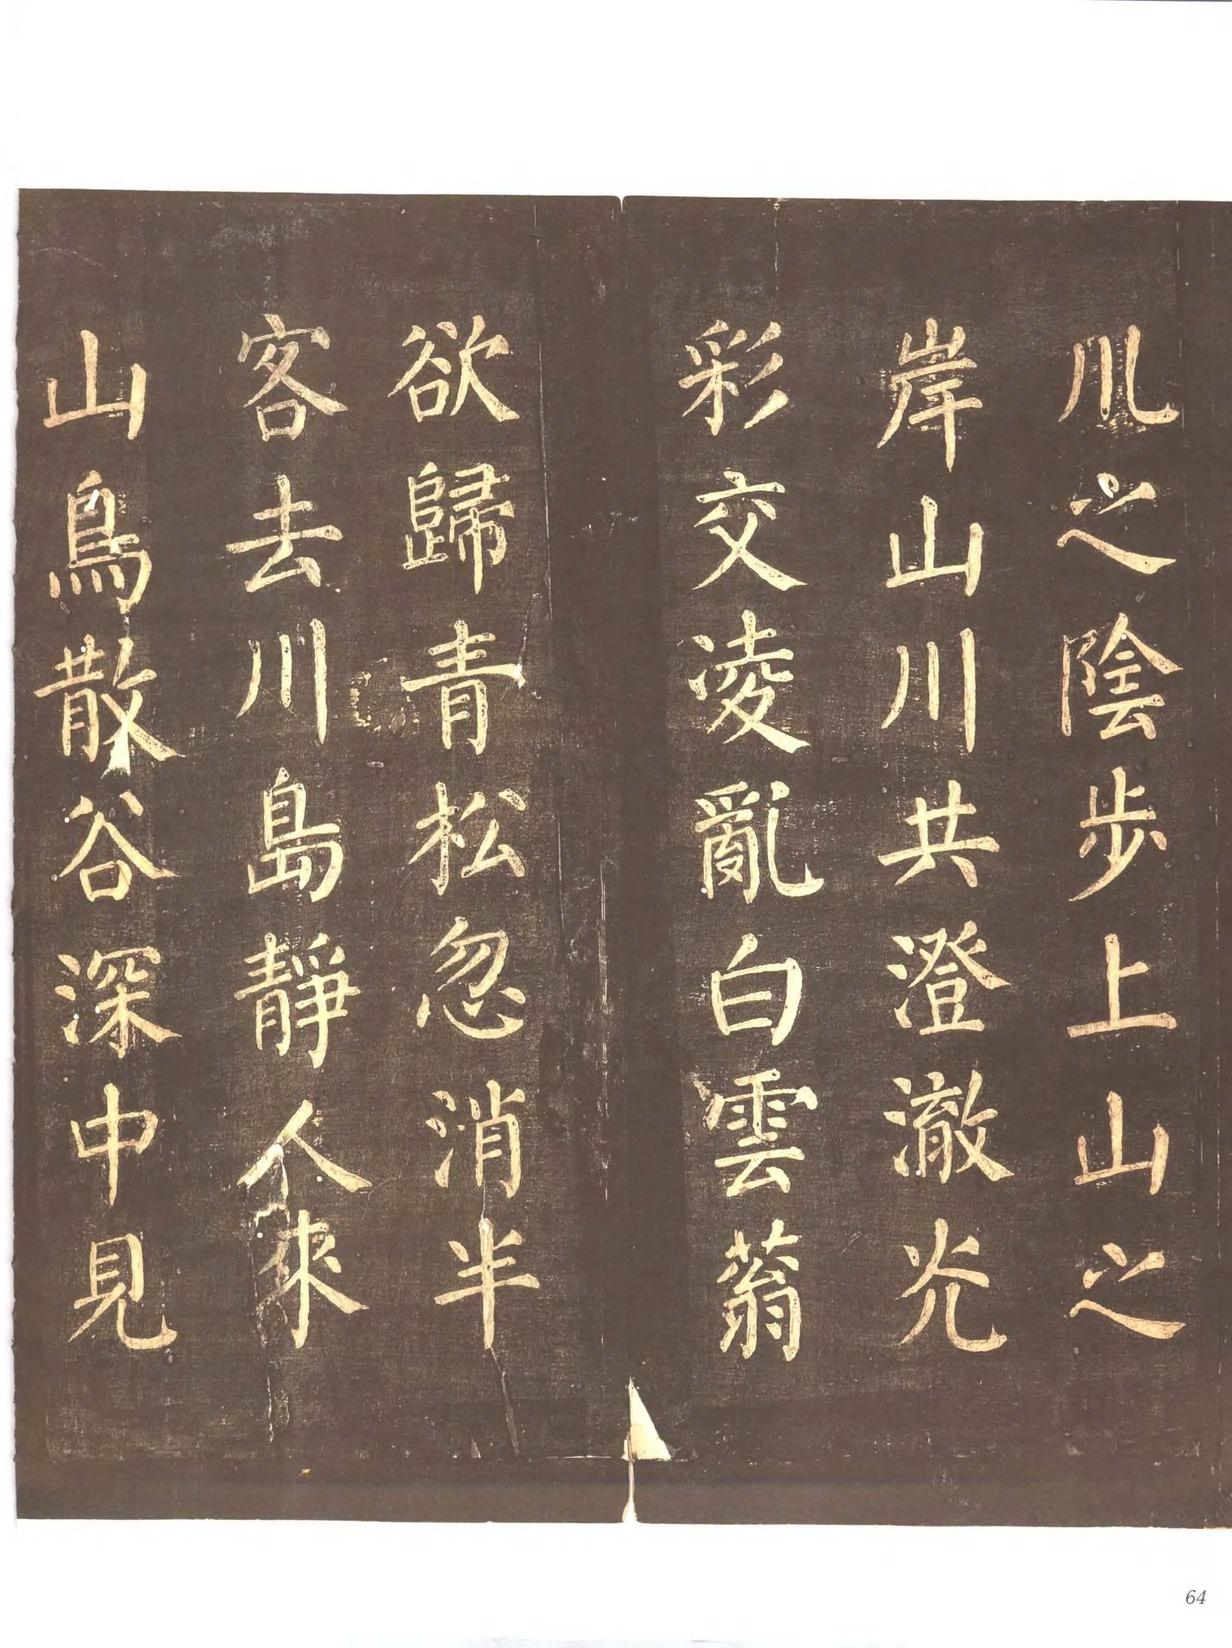 川之陰步上山之
岸山川共澄澈光
彩交凌亂白雲蓊
欲歸青松忽消半
客去川島靜人來
山鳥散谷深中見
64